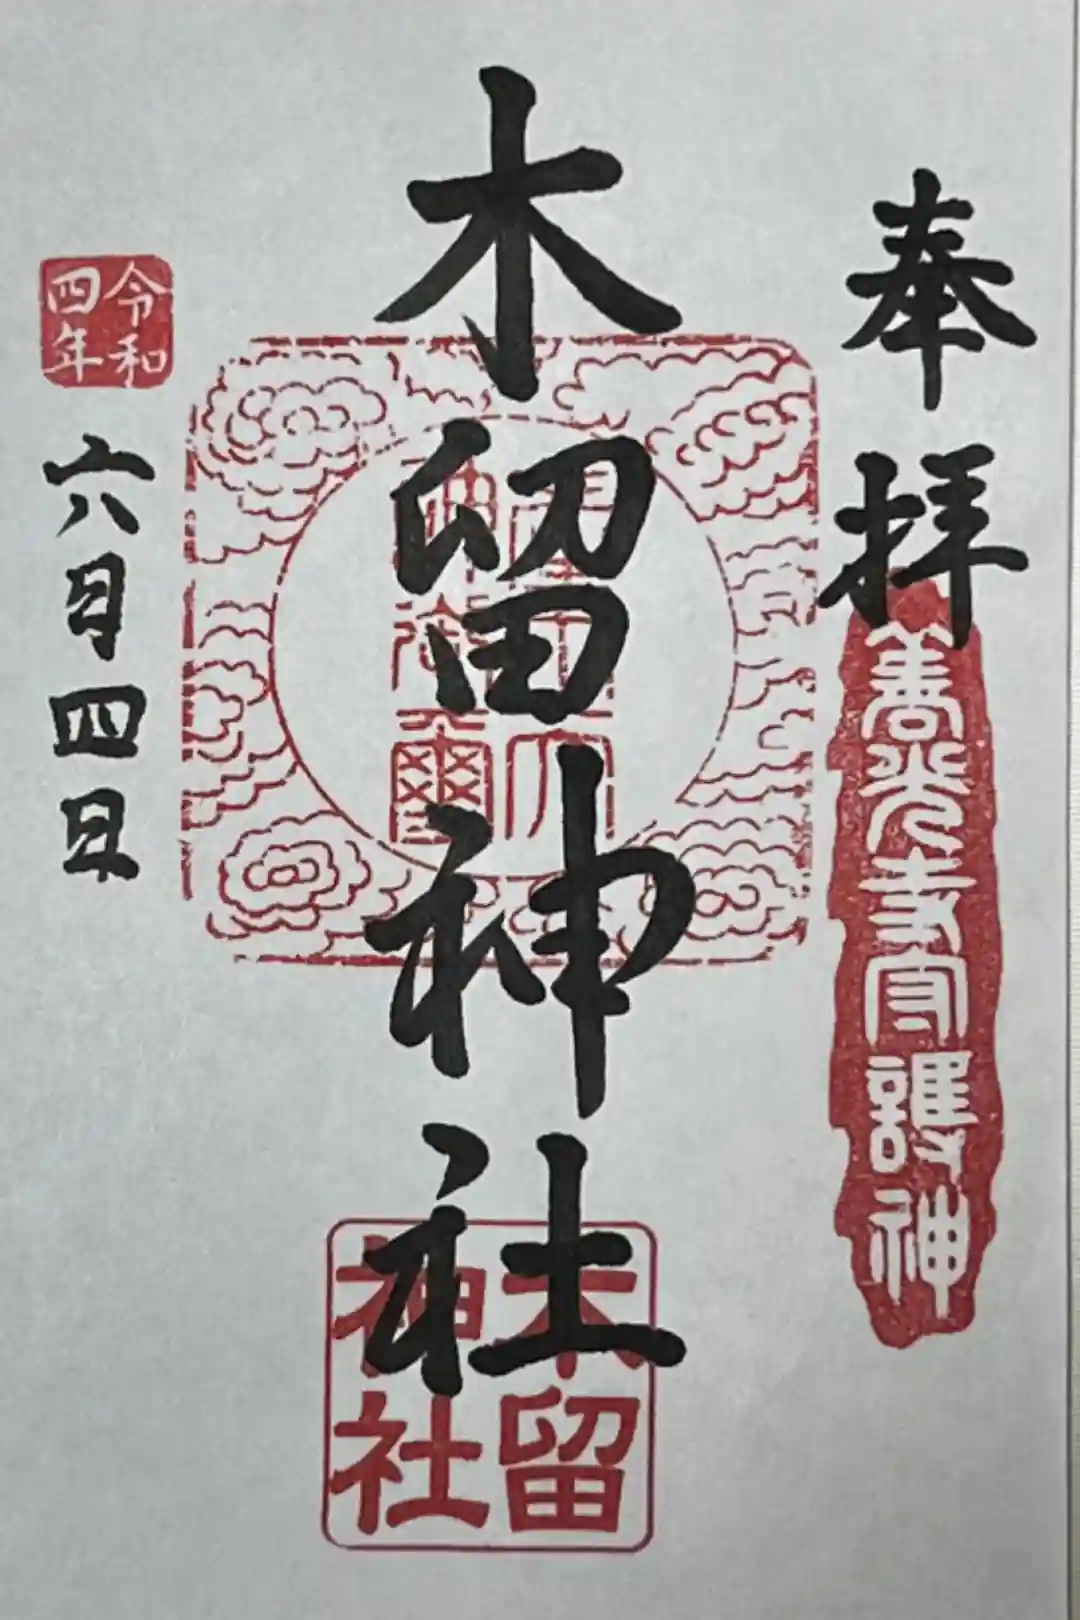 奉拝
善光寺守護神
木留神社
木留
神社
令和
四年
六月四日